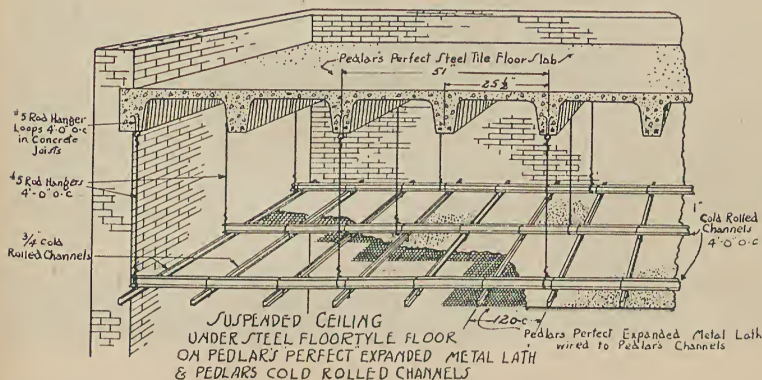 Pedlar's Perfect Steel Tile Floor Slab
51"
25½"
#5 Rod Hanger
Loops 4'-0" O·C
in Concrete
Joists
#5 Rod Hangers
4'-0" O·C
3/4" Cold
Rolled Channels
1"
Cold Rolled
Channels
4'-0" O·C
12 O·C
Pedlars Perfect Expanded Metal Lath
wired to Pedlar's Channels
SUSPENDED CEILING
UNDER STEEL FLOORTYLE FLOOR
ON PEDLAR'S PERFECT EXPANDED METAL LATH
& PEDLARS COLD ROLLED CHANNELS